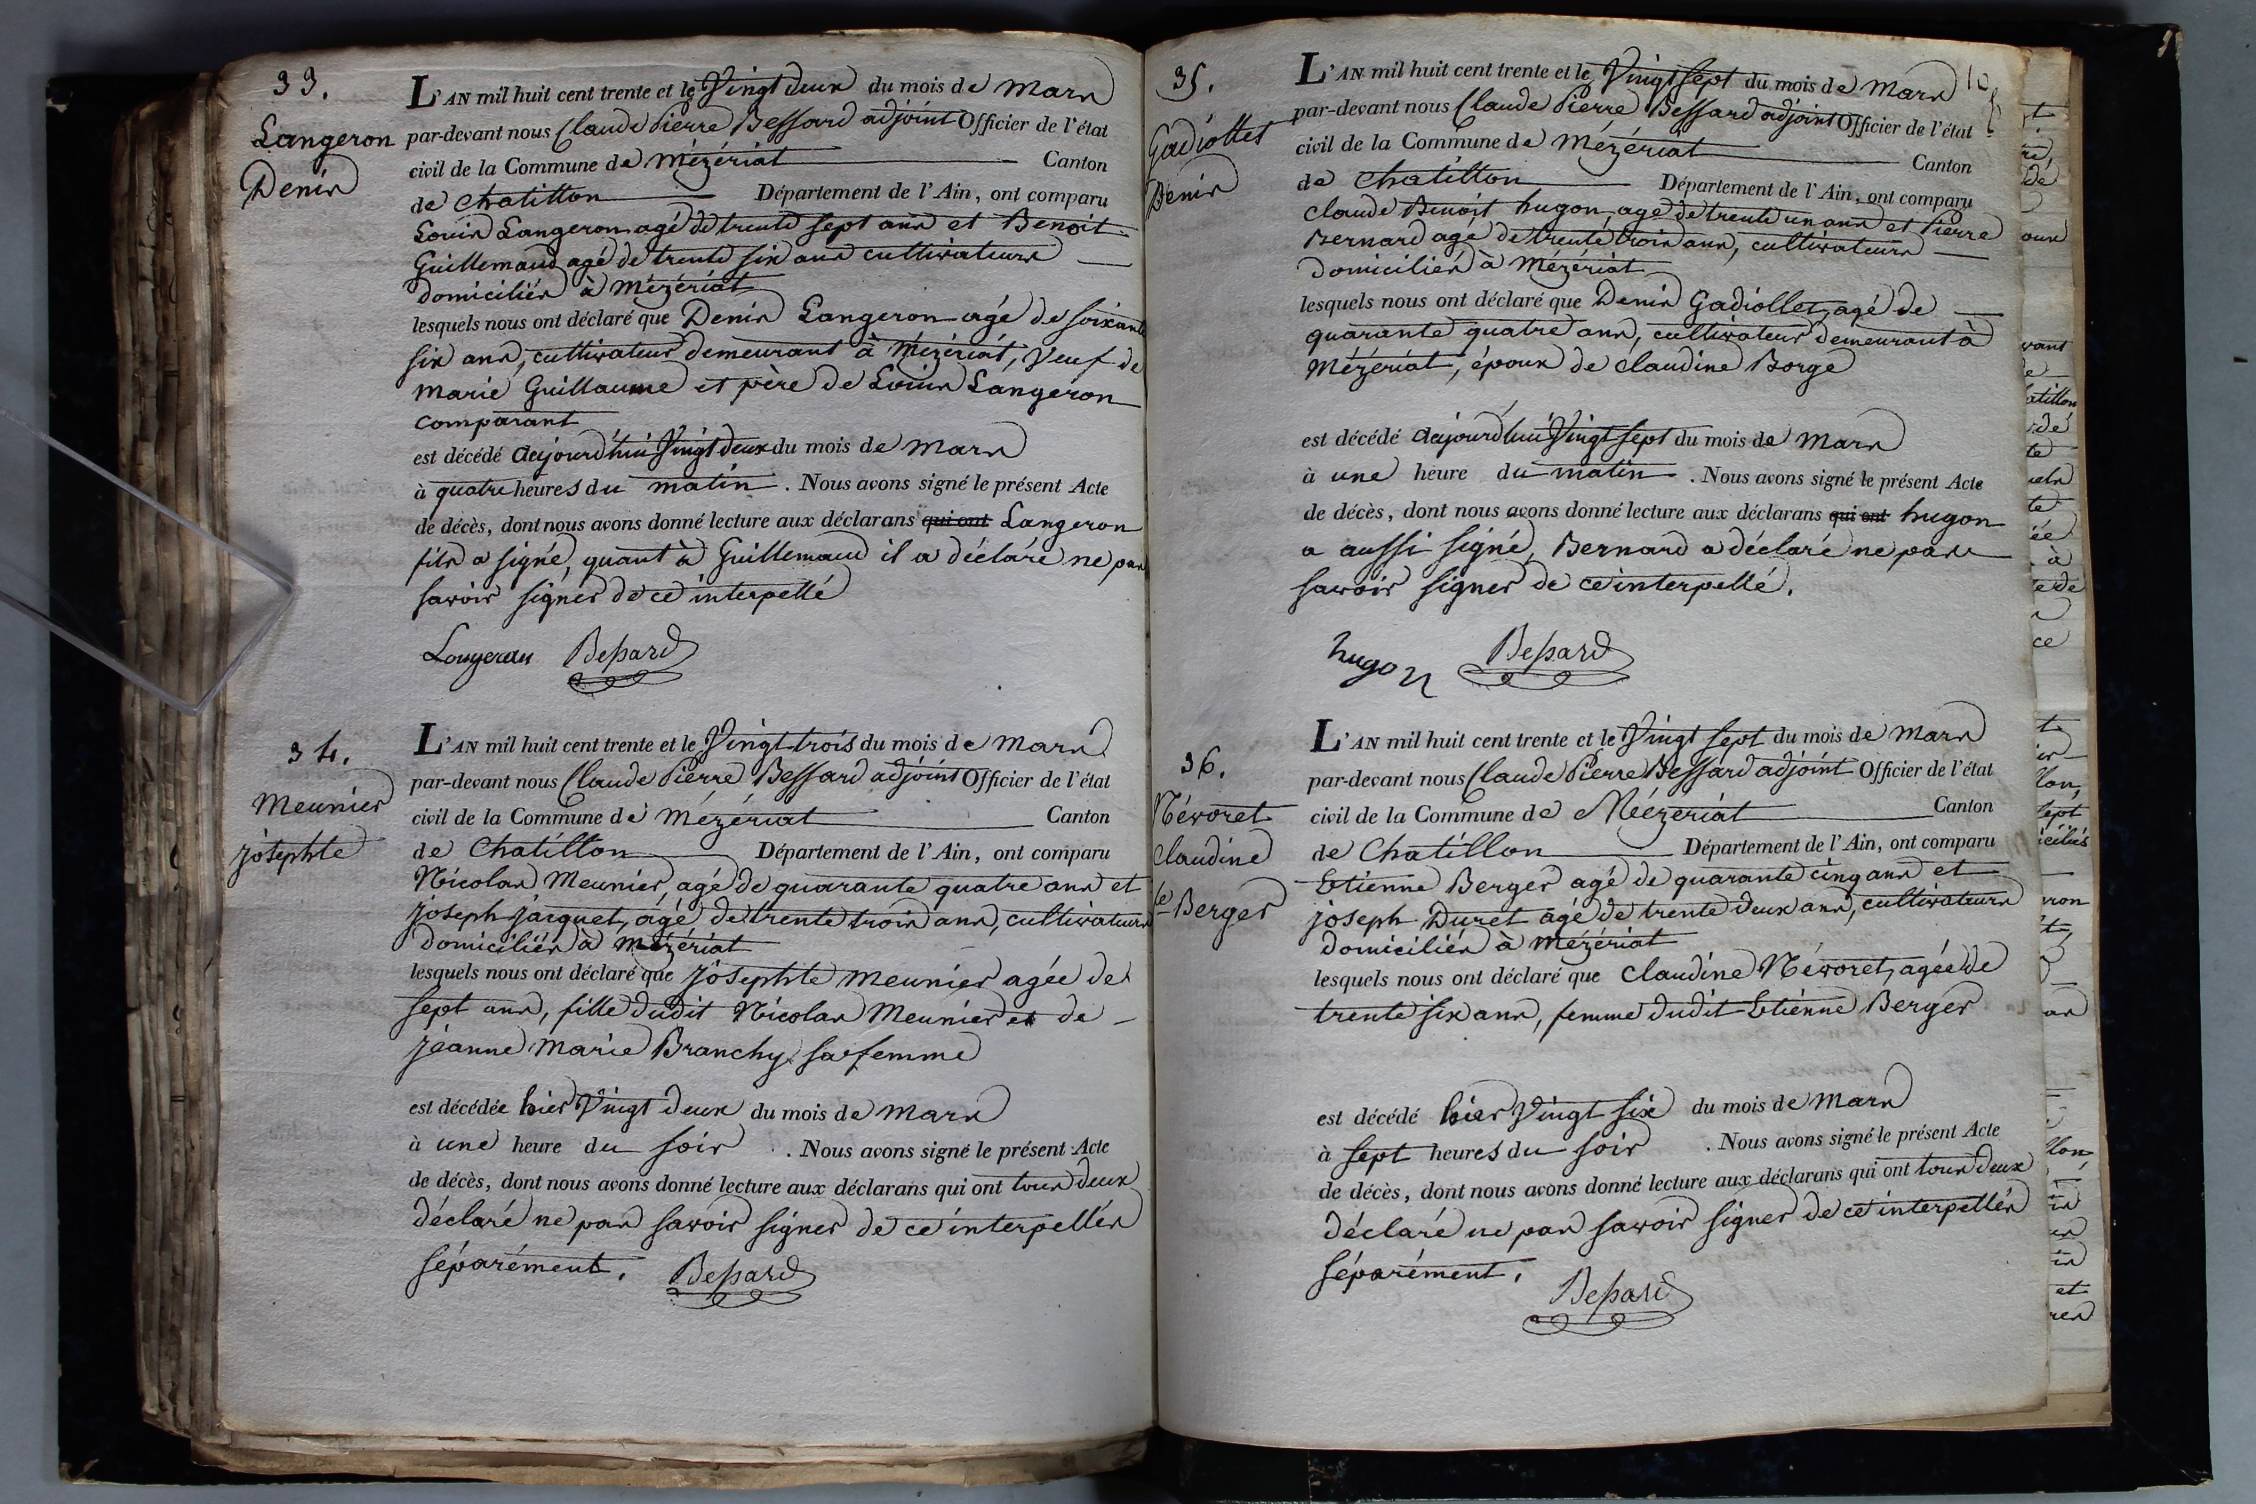 33.
Langeron
Denis
L'AN mil huit cent trente et le Vingt deux du mois de Mars
par-devant nous Claude Pierre Bessard adjoint Officier de l'état
civil de la Commune de Mézériat Canton
de Chatillon Département de l'Ain, ont comparu
Louis Langeron agé de trente sept ans et Benoit
Guillemaud agé de trente six ans cultivateurs
domiciliés à Mézériat
lesquels nous ont déclaré que Denis Langeron agé de soixante
six ans, cultivateur demeurant à Mézériat, Veuf de
Marie Guillaume et père de Louis Langeron
comparant
est décédé aujourd'hui Vingt deux du mois de Mars
à quatre heures du matin. Nous avons signé le présent Acte
de décès, dont nous avons donné lecture aux déclarans qui ont Langeron
fils a signé, quant à Guillemaud il a déclaré ne pas
savoir signer de ce interpellé
Langeron Bessard
34.
Meunier
josephte
L'AN mil huit cent trente et le Vingt trois du mois de Mars
par-devant nous Claude Pierre Bessard adjoint Officier de l'état
civil de la Commune de Mézériat Canton
de Chatillon Département de l'Ain, ont comparu
Nicolas Meunier, agé de quarante quatre ans et
joseph jarquet, agé de trente trois ans, cultivateurs
domiciliés à Mézériat
lesquels nous ont déclaré que josephte Meunier agée de
sept ans, fille dudit Nicolas Meunier et de
jeanne Marie Branchy sa femme
est décédée hier Vingt deux du mois de Mars
à une heure du soir. Nous avons signé le présent Acte
de décès, dont nous avons donné lecture aux déclarans qui ont tous deux
déclaré ne pas savoir signer de ce interpellés
séparément. Bessard
35.
Gadiollet
Denis
10
L'AN mil huit cent trente et le Vingt sept du mois de Mars
par-devant nous Claude Pierre Bessard adjoint Officier de l'état
civil de la Commune de Mézériat Canton
de Chatillon Département de l'Ain, ont comparu
Claude Benoit hugon, agé de trente un ans et Pierre
Bernard agé de trente trois ans, cultivateurs
domiciliés à Mézériat
lesquels nous ont déclaré que Denis Gadiollet, agé de
quarante quatre ans, cultivateur demeurant à
Mézériat, époux de Claudine Borge
est décédé aujourd'hui Vingt sept du mois de Mars
à une heure du matin. Nous avons signé le présent Acte
de décès, dont nous avons donné lecture aux déclarans qui ont hugon
a aussi signé, Bernard a déclaré ne pas
savoir signer de ce interpellé.
hugon Bessard
36.
Névoret
Claudine
fe Berger
L'AN mil huit cent trente et le Vingt sept du mois de Mars
par-devant nous Claude Pierre Bessard adjoint Officier de l'état
civil de la Commune de Mézeriat Canton
de Chatillon Département de l'Ain, ont comparu
Etienne Berger agé de quarante cinq ans et
joseph Duret agé de trente deux ans, cultivateurs
domiciliés à Mézériat
lesquels nous ont déclaré que Claudine Névoret, agée de
trente six ans, femme dudit Etienne Berger
est décédé hier Vingt six du mois de Mars
à sept heures du soir. Nous avons signé le présent Acte
de décès, dont nous avons donné lecture aux déclarans qui ont tous deux
déclaré ne pas savoir signer de ce interpellés
séparément.
Bessard